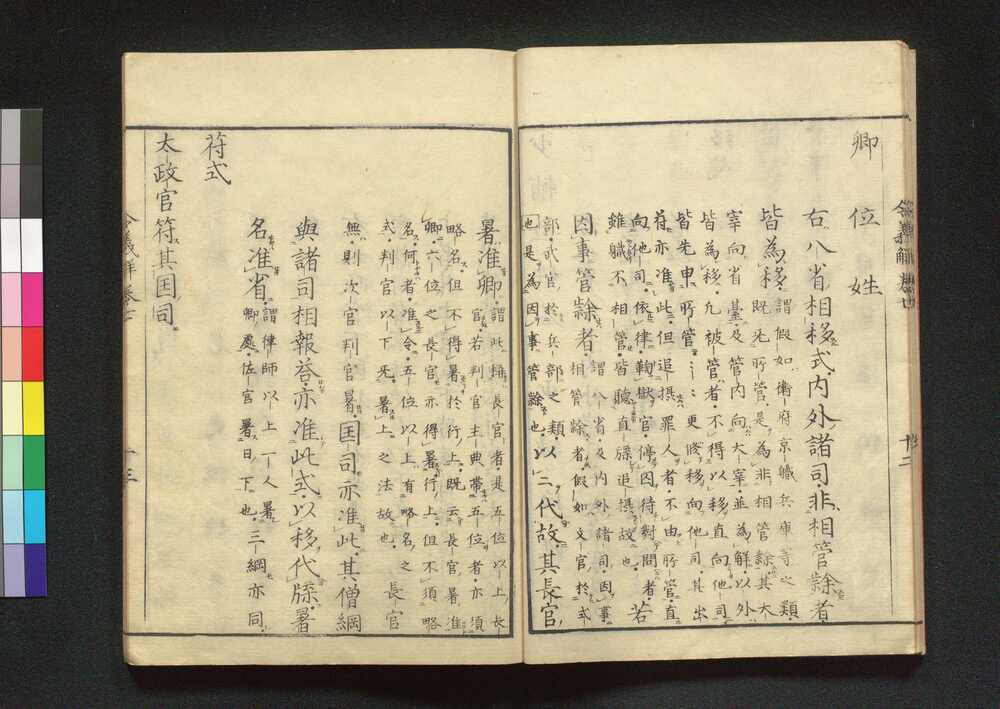 卿位姓
右八省相移式内外諸司非相管隷者
皆為移謂假如衛府京職兵庫等之類
既无所管是為非相管隷其大
宰向省臺及管内向大宰並為解以外
皆為移凡被管者不得以移直向他司
皆先申所管〻〻更修移向他司其出
符亦准此但追摂罪人者不由所管直
向他司依律鞫獄官停囚待對問者
雖職不相管皆聴直牒追摂故也若
因事管隷者謂八省及内外諸司因事
相管隷者假如文官於式
部武官於兵部之類
也是為因事管隷也以〻代故其長官
署准卿謂此緫長官者是五位以上長
官若判官主典帶五位者亦須
略名但不得署於行上既云長官署准
卿六位之長官亦得署行上但不須略
名何者准令五位以上有略名之
式判官以下无署上之法故也長官
無則次官判官署国司亦准此其僧綱
與諸司相報荅亦准此式以移代牒署
名准省謂律師以上一人署
卿處佐官署日下也三綱亦同
符式
太政官符其国司
令義解巻七
十二
令義解巻七
十三